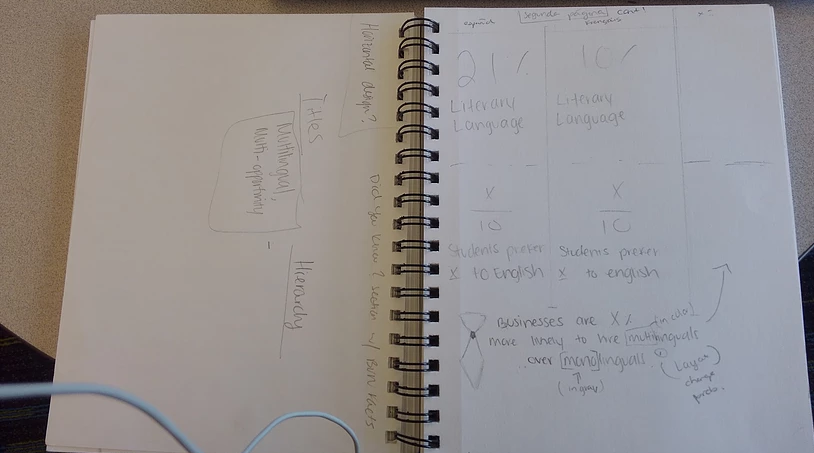 Horizontal design?
Titles
Multilingual,
Multi-opportunity
Hierarchy
Did you know? section w/ Bun Facts
segunda página cont!
español
français
21%
Literary
Language
10%
Literary
Language
X
10
Students prefer
X to English
X
10
Students prefer
X to english
Businesses are X% (in color)
more likely to hire multilinguals
over [mono]linguals.
(in gray)
(Layout
change